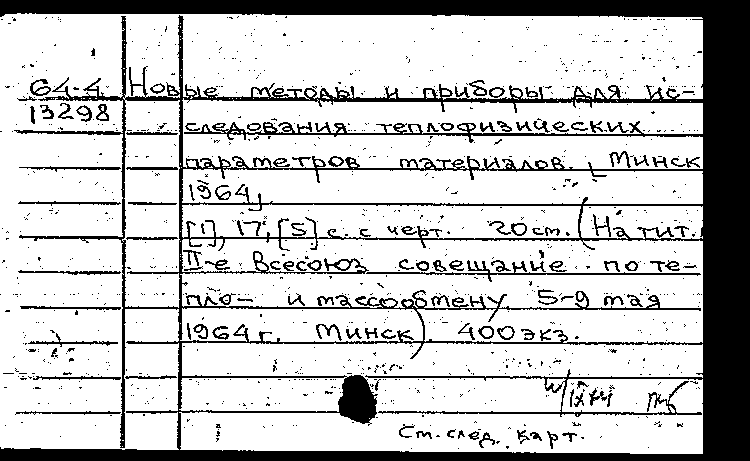 64-4 Новые методы и приборы для ис-
13298 следования теплофизических
параметров материалов. [Минск
1964]
[1], 17, [5] с. с черт. 20 см. (На тит.
II-е Всесоюз совещание по те-
пло- и массообмену 5-9 мая
1964 г. Минск). 400 экз.
См. след. карт.